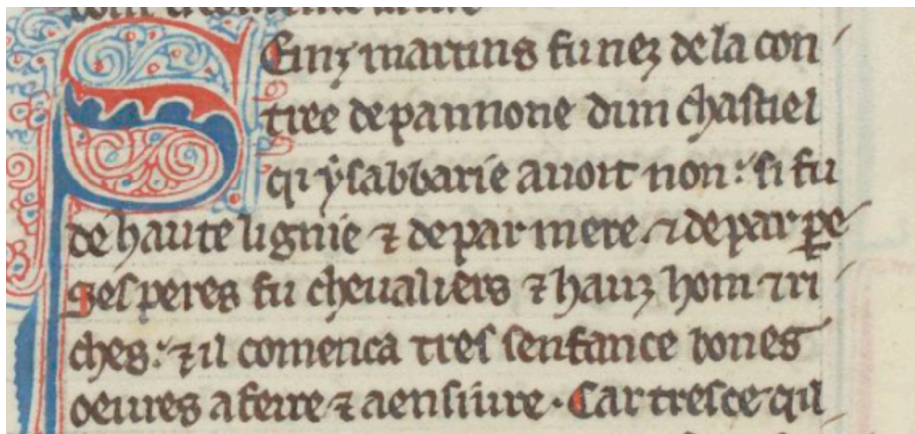 Seinz martins fu nez de la con
tree de pannone dun chastiel
qi ysabbarie auoit non: si fu
de haute lignie ⁊ de par mere. ⁊ de par pe
Ses peres fu cheualiers ⁊ hauz hom ⁊ ri
ches: ⁊ il comenca tres senfance bones
oeures a ferre ⁊ a ensiure. Car tresce qil